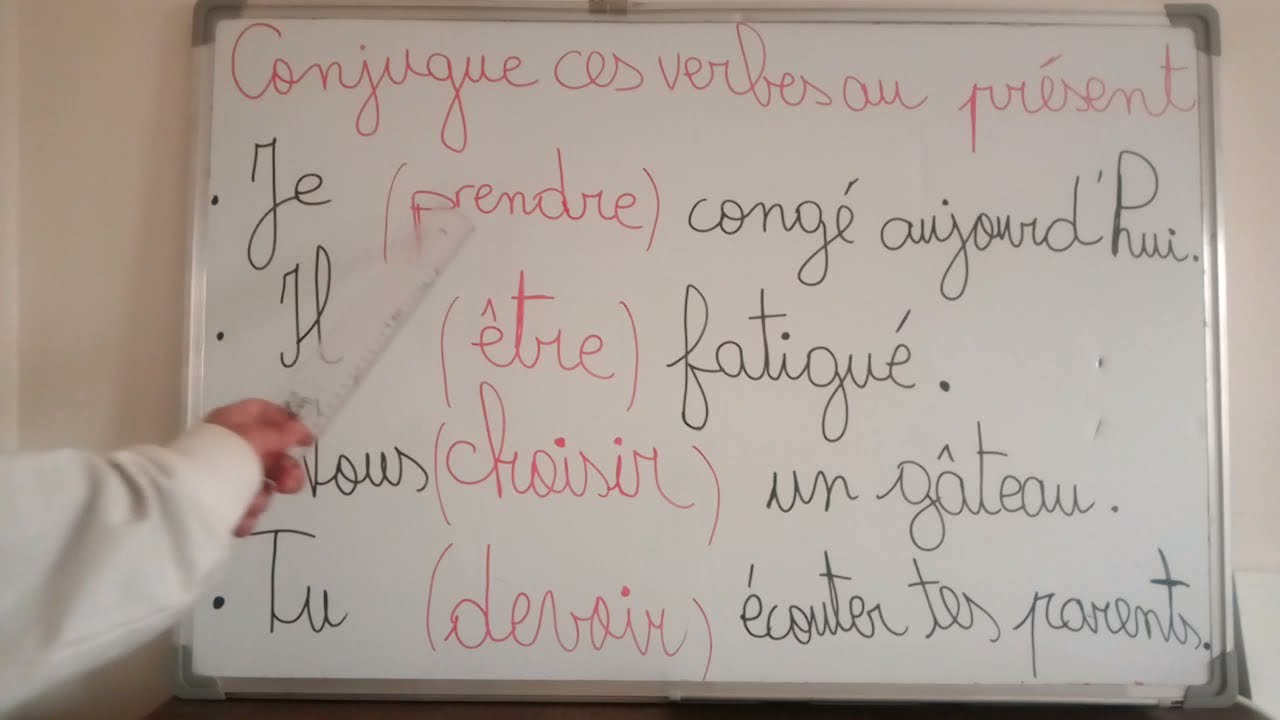 Conjugue ces verbes au présent
. Je (prendre) congé aujourd'hui.
. Il (être) fatigué.
Vous (choisir) un gâteau.
. Tu (devoir) écouter tes parents.